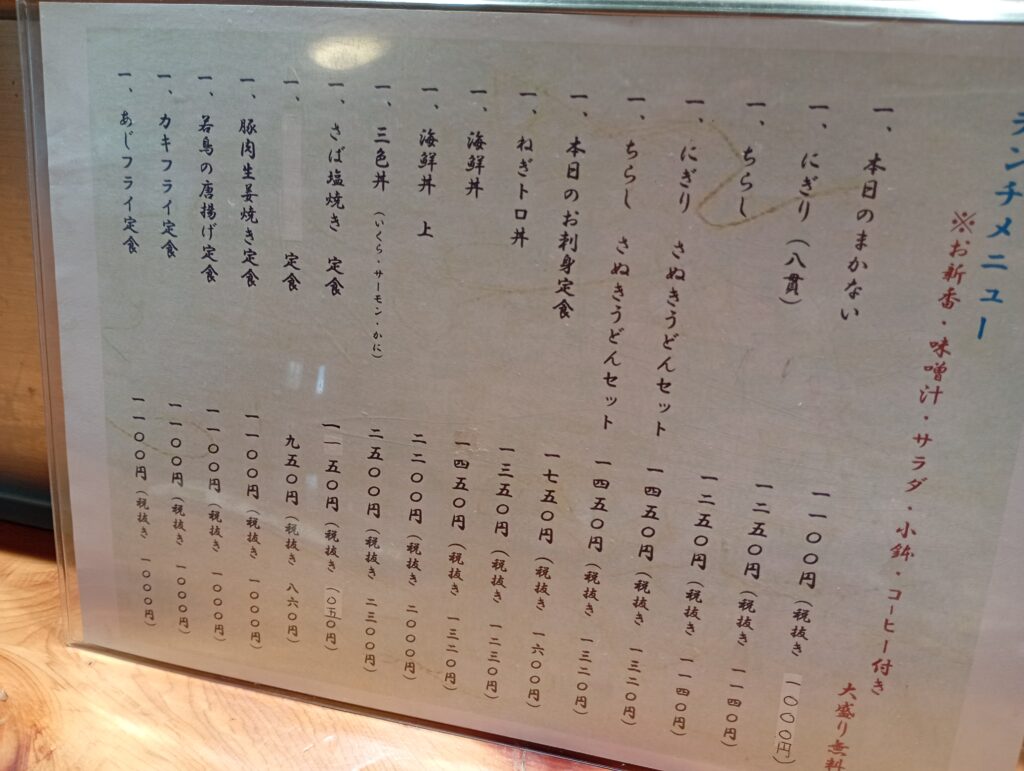 ランチメニュー
※お新香・味噌汁・サラダ・小鉢・コーヒー付き
大盛り無料
一、本日のまかない 一一〇〇円（税抜き 一〇〇〇円）
一、にぎり（八貫） 一二五〇円（税抜き 一一四〇円）
一、ちらし 一二五〇円（税抜き 一一四〇円）
一、にぎり さぬきうどんセット 一四五〇円（税抜き 一三二〇円）
一、ちらし さぬきうどんセット 一四五〇円（税抜き 一三二〇円）
一、本日のお刺身定食 一七五〇円（税抜き 一六〇〇円）
一、ねぎトロ丼 一三五〇円（税抜き 一二三〇円）
一、海鮮丼 一四五〇円（税抜き 一三二〇円）
一、海鮮丼 上 二二〇〇円（税抜き 二〇〇〇円）
一、三色丼（いくら・サーモン・かに） 二五〇〇円（税抜き 二三〇〇円）
一、さば塩焼き 定食 一一五〇円（税抜き 一〇五〇円）
一、 定食 九五〇円（税抜き 八六〇円）
一、豚肉生姜焼き定食 一一〇〇円（税抜き 一〇〇〇円）
一、若鳥の唐揚げ定食 一一〇〇円（税抜き 一〇〇〇円）
一、カキフライ定食 一一〇〇円（税抜き 一〇〇〇円）
一、あじフライ定食 一一〇〇円（税抜き 一〇〇〇円）